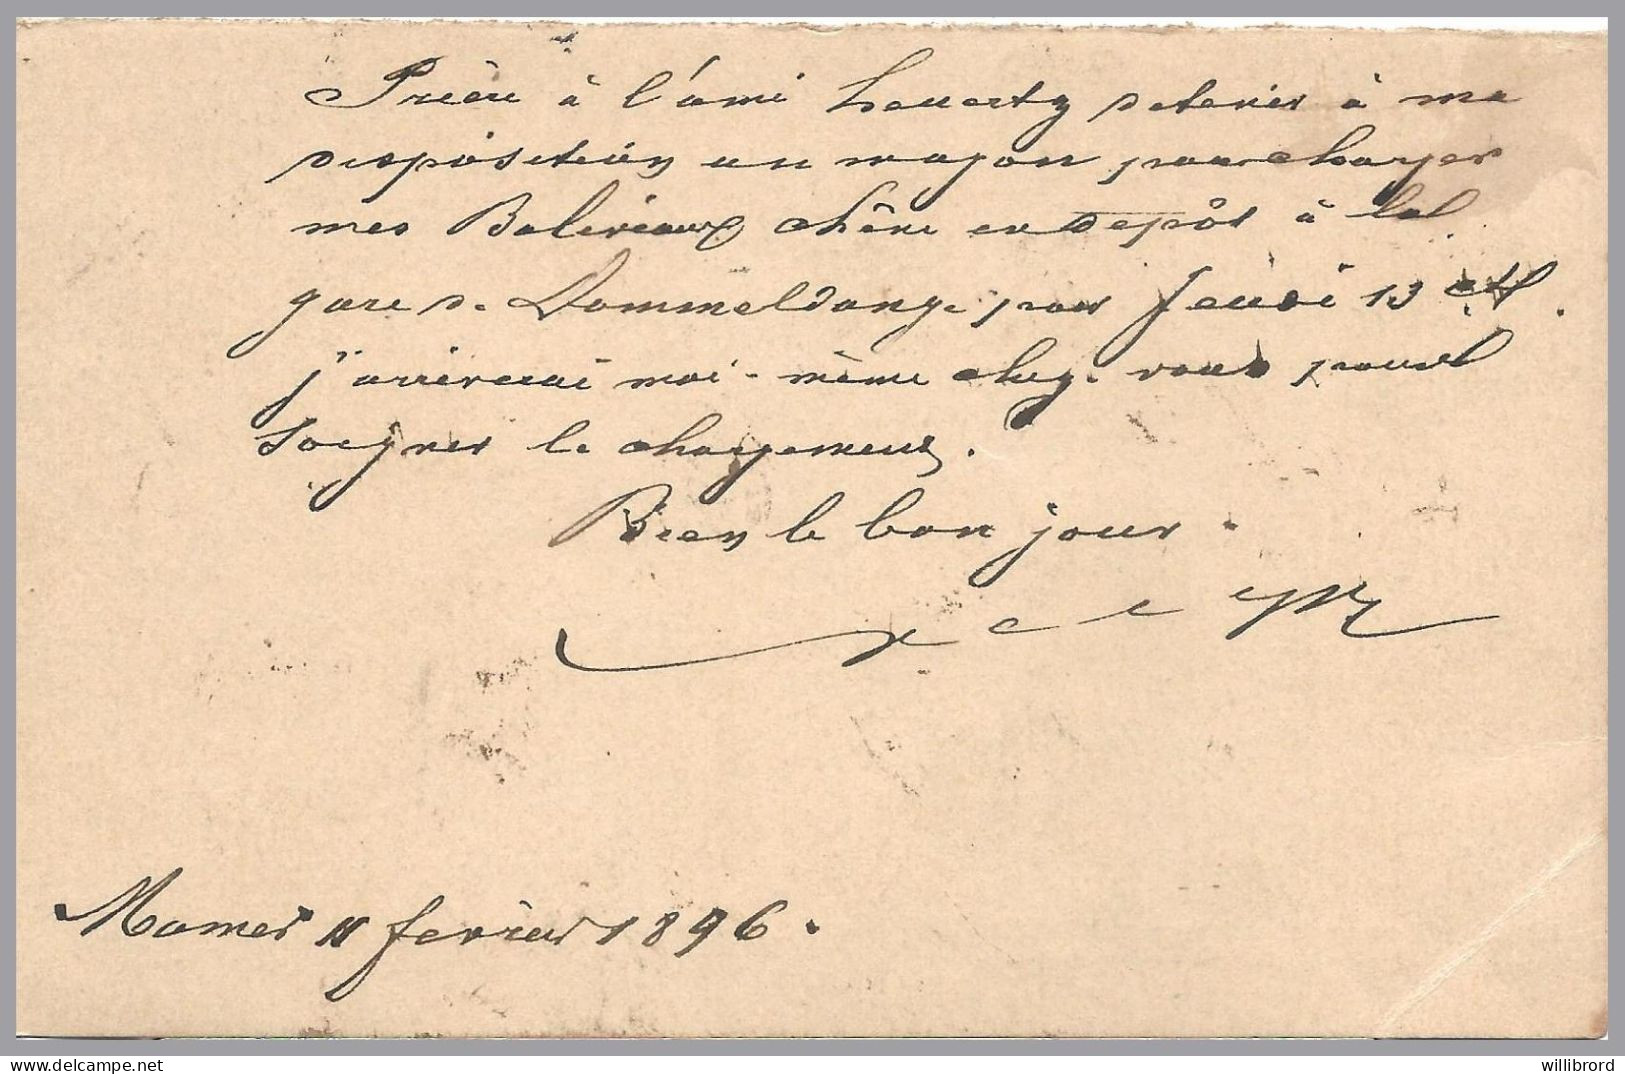 Prière à l'ami Heuertz de tenir à ma
disposition un wagon pour charger
mes Baliveaux chêne en depôt à la
gare de Dommeldange pour Jeudi 13 ct
j'arriverai moi-même chez-vous pour
soigner le chargement.
Bien le bon jour.
Mamer 11 fevrier 1896.
willibrord